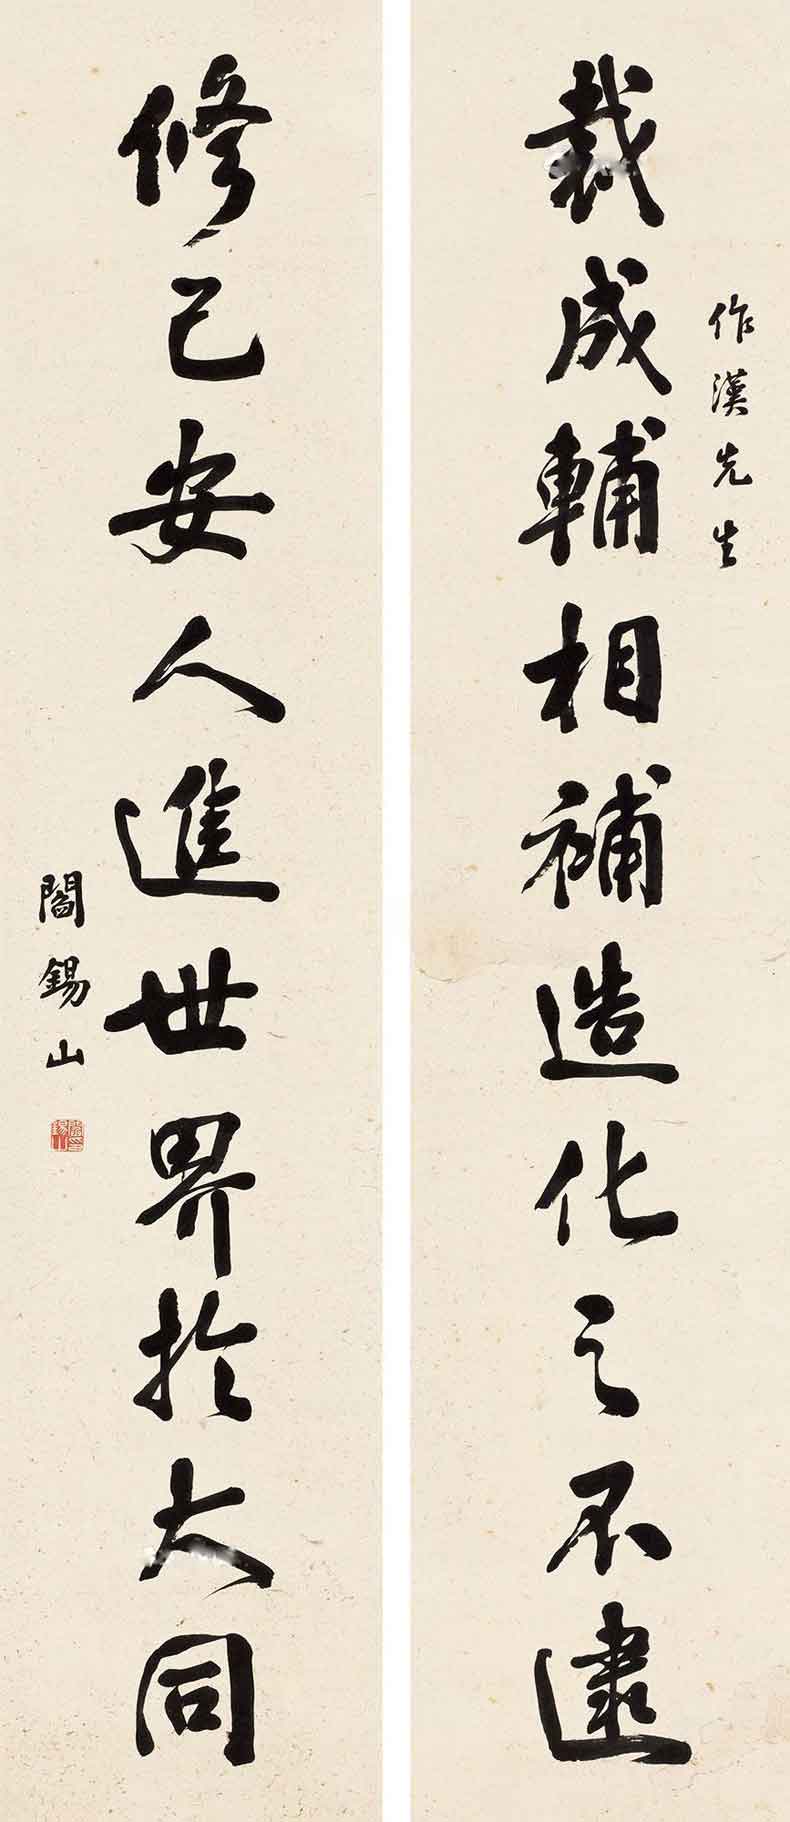 作漢先生
裁成輔相補造化之不逮
修己安人進世界於大同
閻錫山